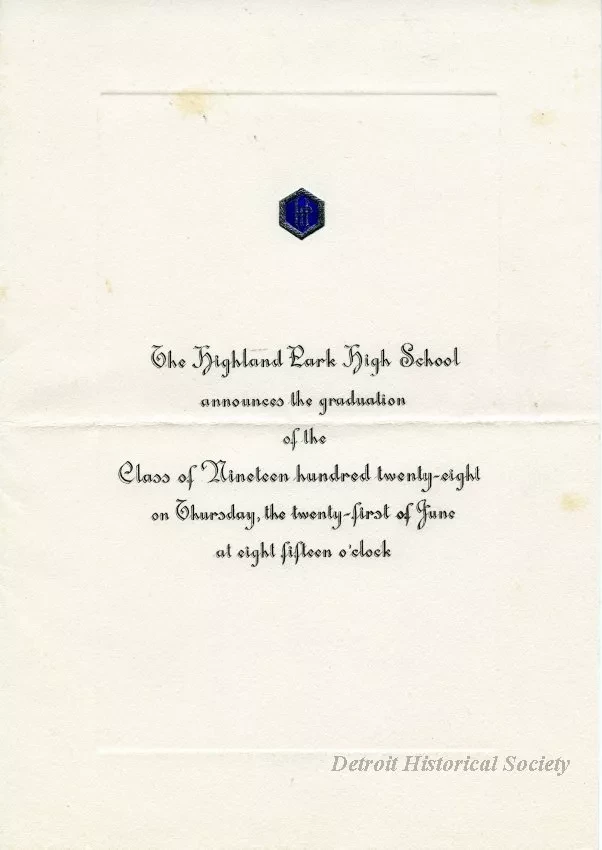 The Highland Park High School
announces the graduation
of the
Class of Nineteen hundred twenty-eight
on Thursday, the twenty-first of June
at eight fifteen o'clock
Detroit Historical Society